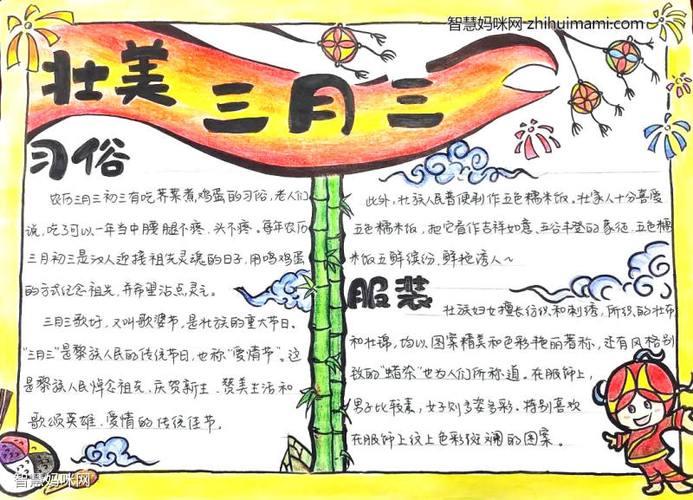 智慧妈咪网-zhihuimami.com
壮美
三月三
习俗
农历三月三初三有吃荠菜煮鸡蛋的习俗,老人们
说,吃了可以一年当中腰腿不疼、头不疼。每年农历
三月初三是汉人迎接祖先灵魂的日子,用鸣鸡蛋
的方式纪念祖先,并希望沾点灵气。
三月三歌好,又叫歌婆节,是壮族的重大节日。
“三月三”是黎族人民的传统节日,也称“爱情节”。这
是黎族人民悼念祖先、庆贺新生、赞美生活和
歌颂英雄、爱情的传统佳节。
此外,壮族人民普便制作五色糯米饭。壮家人十分喜爱
五色糯米饭,把它看作吉祥如意、五谷丰登的象征,五色糯
米饭五鲜缤纷,鲜艳诱人~
服装
壮族妇女擅长纺织和刺绣,所织的壮布
和壮锦,均以图案精美和色彩艳丽著称,还有风格别
致的“蜡染”也为人们所称道。在服饰上,
男子比较素,女子则多姿多彩。特别喜欢
在服饰上纹上色彩斑斓的图案。
智慧妈咪网